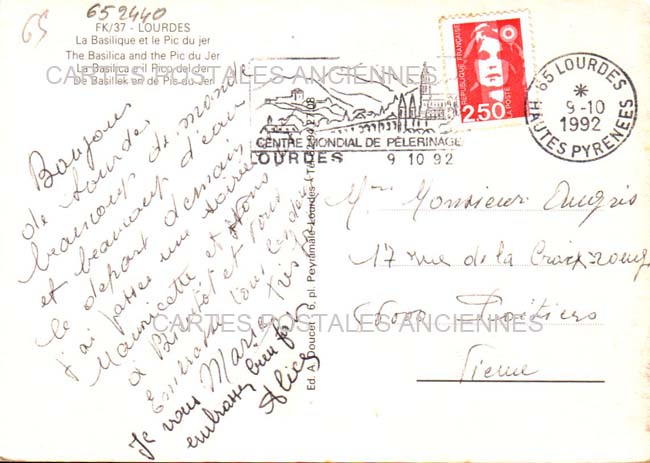 65
65 2440
FK/37 - LOURDES
La Basilique et le Pic du jer
The Basilica and the Pic du Jer
La Basilica e il Pico del Jer
De Basiliek en de Pic du Jer
CARTES POSTALES ANCIENNES
REPUBLIQUE FRANÇAISE
2,50
LA POSTE
65 LOURDES
9-10
1992
HAUTES PYRENEES
CENTRE MONDIAL DE PÈLERINAGE
LOURDES 9 10 92
Bonjour
de Lourdes
beaucoup de monde
et beaucoup d'eau
le départ demain
j'ai passé une soirée
Mauricette et
à Bientôt et
tous les deux
Je vous embrasse bien fort
Alice
Mr Monsieur
17 rue de la Croix rouge
Poitiers
Vienne
CARTES POSTALES ANCIENNES
Ed. A. Doucet - 6, pl. Peyramale-Lourdes - Tél.